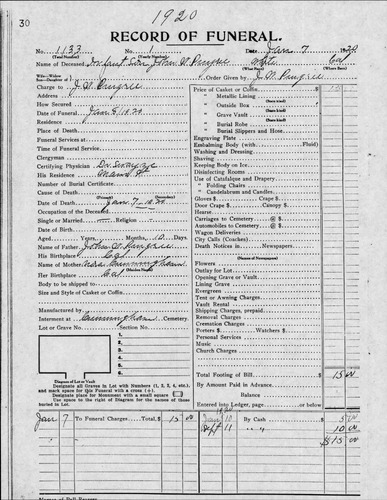 1920
30
RECORD OF FUNERAL.
No. 1133 No. 1 Date Jan 7 1920
(Total Number) (Yearly Number)
Name of Deceased Infant Son John V. Pingree White Cal
(What Race) (Where Born)
Charge to J. V. Pingree Order Given by J. V. Pingree
Address
How Secured
Date of Funeral Jan 8 1920
Residence
Place of Death
Funeral Services at
Time of Funeral Service
Clergyman
Certifying Physician Dr.
His Residence
Number of Burial Certificate
Cause of Death
(Primary) (Secondary)
Date of Death Jan 7 1920
Occupation of the Deceased
Single or Married Religion
Date of Birth
Aged Years, Months, 10 Days.
Name of Father John V. Pingree
His Birthplace Cal
Name of Mother Cunningham
(Maiden Name)
Her Birthplace Cal
Body to be shipped to
Size and Style of Casket or Coffin
Manufactured by
Interment at Cunningham Cemetery.
Lot or Grave No. Section No.
1
2
3
4
5
6
Diagram of Lot or Vault
Designate all Graves in Lot with Numbers (1, 2, 3, 4, etc.) and mark space for this Funeral with a cross (+).
Designate place for Monument with a small square
Use space to the right of Diagram for the names of those buried in Lot.
Price of Casket or Coffin
" Metallic Lining
(State kind)
" Outside Box
(State kind)
" Grave Vault
(State kind)
" Burial Robe
(State kind)
" Burial Slippers and Hose
Engraving Plate
Embalming Body (with Fluid)
Washing and Dressing
Shaving
Keeping Body on Ice
Disinfecting Rooms
Use of Catafalque and Drapery
" Folding Chairs
" Candelabrum and Candles
Gloves $ Crape $
Door Crape $ Canopy $
Hearse
Carriages to Cemetery @ $
Automobiles to Cemetery @ $
Wagon Deliveries
City Calls (Coaches)
Death Notices in Newspapers
(Names of Newspapers)
Flowers
Outlay for Lot
Opening Grave or Vault
Lining Grave
Evergreen
Tent or Awning Charges
Vault Rental
Shipping Charges, prepaid
Removal Charges
Cremation Charges
Porters $ Watchers $
Personal Services
Music
Church Charges
Total Footing of Bill $ 15 00
By Amount Paid in Advance
Balance
Entered into Ledger, page or below.
Jan 7 To Funeral Charges Total, $ 15 00
1920
Jan 10 By Cash 5 00
Sept 11 " " 10 00
$15 00